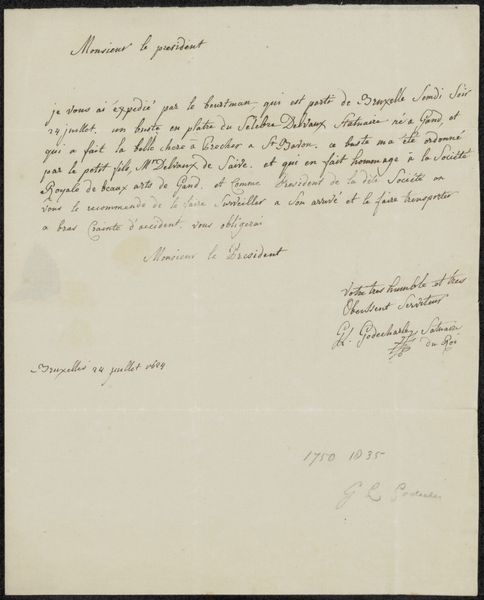 Monsieur le president
je vous ai expedié par le beurtman, qui est parti de Bruxelle Samdi Soir
24 juillet, un buste en platre du Selebre Delvaux Statuaire né a Gand, et
qui a fait la belle chere à Precher a St Bavon. ce buste ma été ordonné
par le petit fils, Mr Delvaux de Saive. et qui en fait homage à la Société
Royale de beaux arts de Gand. et Comme President de la dite Société on
vous le recommende de la faire Surveiller a Son arrivé et le faire transporter
a bras Crainte d'accident. vous obligerai
Monsieur le President
Votre tres humble et tres
Obeissent Serviteur
GL. Godecharle, Statuaire
du Roi
Bruxelles 24 juillet
1750 1835
G L Godecharle